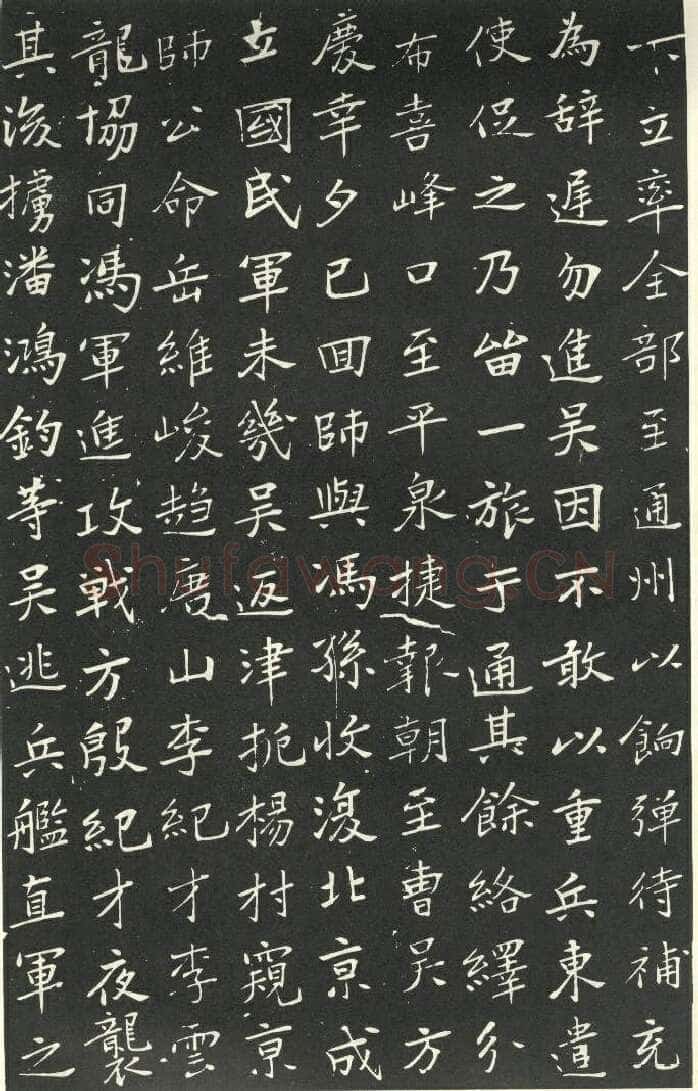 下立率全部至通州以餉彈待補充
為辞遅勿進吴因不敢以重兵東遣
使促之乃畱一旅于通其餘絡繹分
布喜峰口至平泉捷報朝至曹吴方
慶幸夕已回師與馮孫收復北京成
立國民軍未幾吴返津扼楊村窺京
師公命岳維峻趋唐山李紀才李雲
龍協同馮軍進攻戰方殷紀才夜襲
其後擄潘鴻鈞等吴逃兵艦直軍之
Shufawang.CN